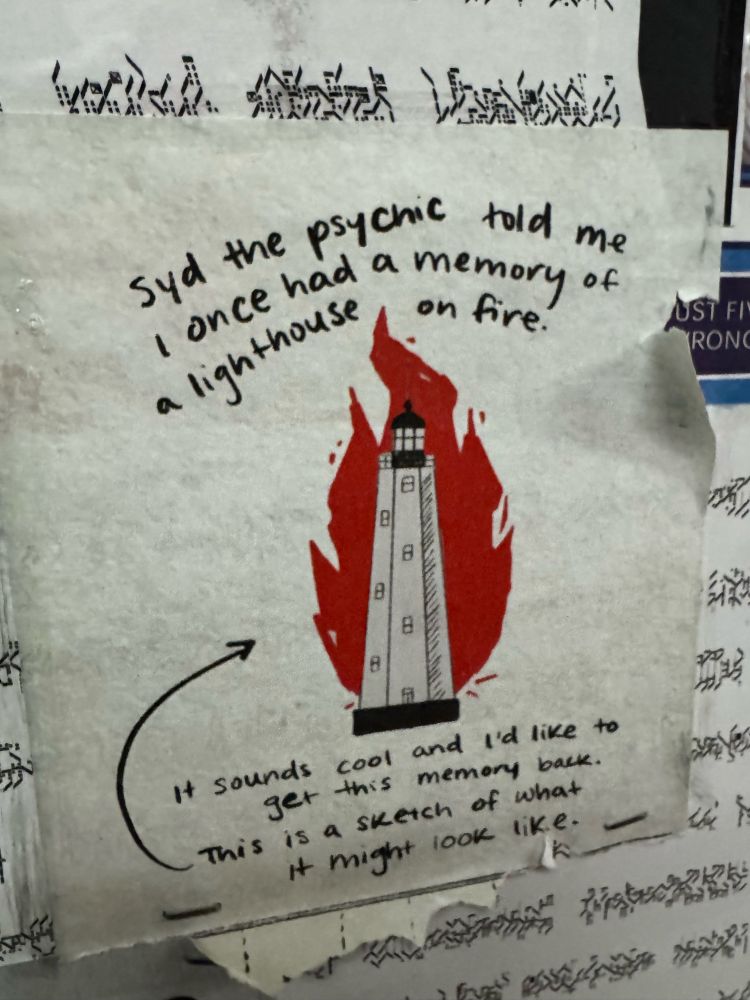 Syd the psychic told me
I once had a memory of
a lighthouse on fire.
UST FIV
RONG
It sounds cool and I'd like to
get this memory back.
This is a sketch of what
it might look like.